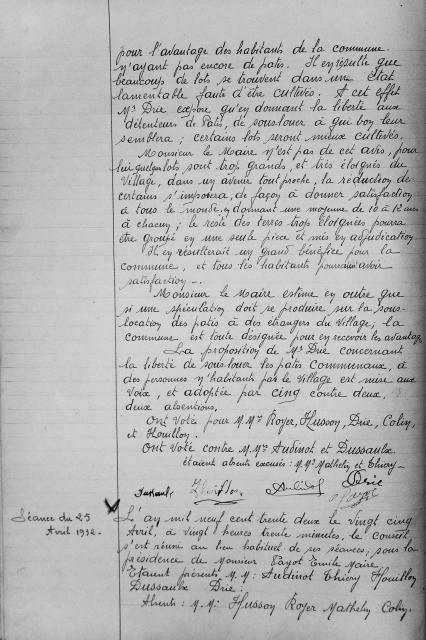 pour l'avantage des habitants de la commune
n'ayant pas encore de patis. Il en résulte que
beaucoup de lots se trouvent dans un état
lamentable faute d'être cultivés. A cet effet
Mr Drie expose qu'en donnant la liberté aux
détenteurs de Patis, de sous-louer à qui bon leur
semblera; certains lots seront mieux cultivés.
Monsieur le Maire n'est pas de cet avis, pour
lui quelques lots sont trop grands, et très éloignés du
Village, dans un avenir tout proche, la réduction de
certains s'imposera, de façon à donner satisfaction
à tous le monde, en donnant une moyenne de 10 à 12 ares
à chacun; le reste des terres trop éloignées pourra
être groupé en une seule pièce et mis en adjudication
Il en résulterait un grand bénéfice pour la
commune, et tous les habitants pourraient avoir
satisfaction -.
Monsieur le Maire estime en outre que
si une spéculation doit se produire sur la sous-
location des patis à des étrangers du Village, la
commune est toute désignée pour en recevoir les avantages
La proposition de Mr Drie concernant
la liberté de sous-louer les patis communaux, à
des personnes n'habitant pas le Village est mise aux
voix, et adoptée par cinq contre deux,
deux abstentions,
Ont Voté pour M.Mrs Royer, Husson, Drie, Colin,
et Houillon.
Ont Voté contre M.Mrs Audinot et Dussaulx
étaient absents excusés: M.Mrs Mathelin et Thiery -
Dussaulx Audinot Drie
Séance du 25
Avril 1932 -
L'an mil neuf cent trente deux le vingt cinq
Avril, à vingt heures trente minutes, le conseil
s'est réuni au lieu habituel de ses séances, sous la
présidence de Monsieur Payot Emile Maire,
Etaient présents M.M: Audinot Thiéry Houillon
Dussaulx Drie.
Absents: M.M: Husson Royer Mathelin Colin,